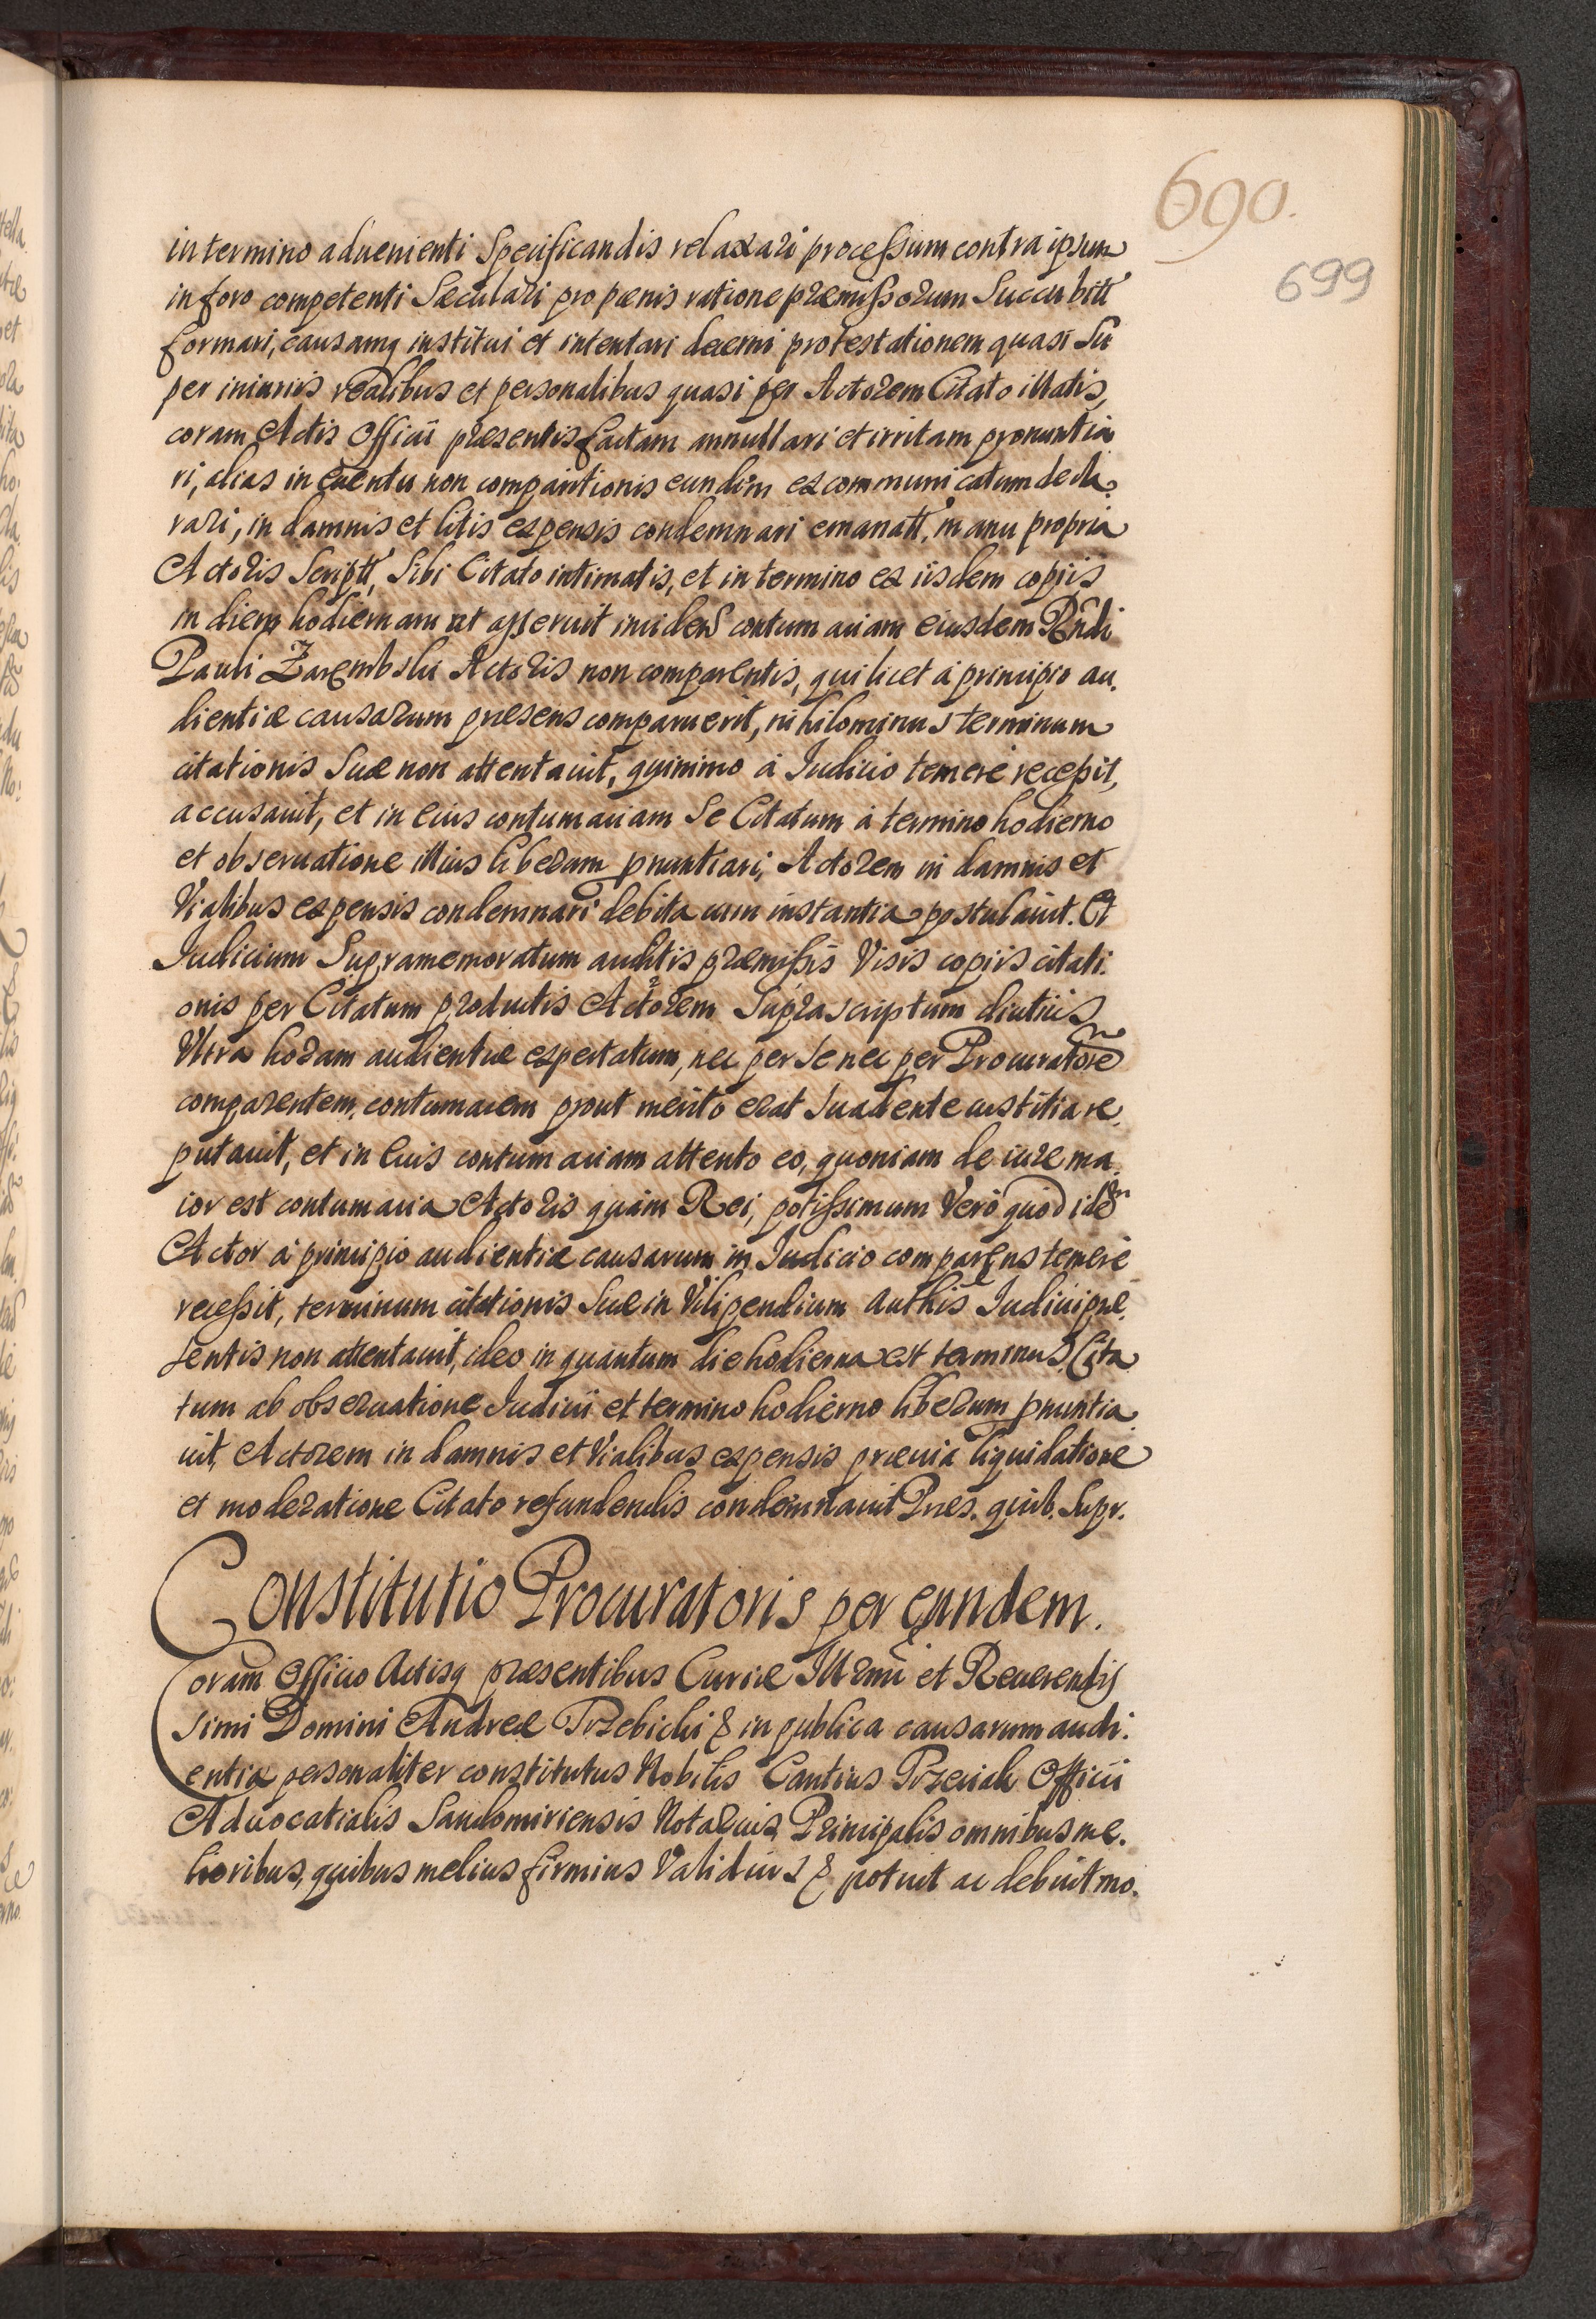 690.
699
in termino aduenienti Specificandis relaxari processum contra ipsum
in foro competenti Sæculari pro pænis ratione præmissorum Succubitt
formari, causamq instituí et intentari decerni protestationem quasi Su
per iniuriis realibus et personalibus quasi per Actorem Citato illatis,
coram Actis Officii præsentis factam annullari et irritam pronuntia
ri, alias in euentu non comparitionis eundem excommunicatum decla.
rari, in damnis et litis expensis condemnari emanatt, manu propria
Actoris Scriptt, Sibi Citato intimatis, et in termino ex iisdem copiis
in diem hodiernam ut asseruit inciden contumaciam eiusdem Rndi
Pauli Zarembski Actoris non comparentis, qui licet á principio au.
dientiæ causarum præsens comparuerit, nihilominus terminum
citationis Suæ non attentauit, quinimo á Iudicio temerè recessit,
accusauit, et in eius contumaciam Se Citatum á termino hodierno
et obseruatione illius liberum pnuntiari, Actorem in damnis et
Vialibus expensis condemnari debita cum instantia postulauit. Et
Iudicium Supramemoratum auditis præmissis Visis copiis citati.
onis per Citatum productis Actorem Suprascriptum diutiús
Vltra horam audientiæ expectatum, nec per se nec per Procuratorem
comparentem, contumacem prout meritò erat Suadente iustitia re.
putauit, et in Euis contumaciam attento eo, quoniam de iure ma.
ior est contumacia Actoris quám Rei, potissimum Verò quod idem
Actor á principio audientiæ causarum in Iudicio comparens temerè
recessit, terminum citationis Suæ in Vilipendium Authis Iudicii præ.
sentis non attentauit, ideo in quantum die hodierna est terminus, Cita
tum ab obseruatione Iudicii et termino hodierno liberum pnuntia
uit, Actorem in damnis et Vialibus expensis præuia liquidatione
et moderatione Citato refundendis condemnauit Pres. quib. Supr.
Constitutio Procuratoris per eundem.
Coram Officio Actisq præsentibus Curiæ Illrmi et Reuerendis
simi Domini Andreæ Trzebicki & in publica causarum audi.
entia personaliter constitutus Nobilis Cantius Trzeciak Officii
Aduocatialis Sandomiriensis Notarius, Principalis omnibus me.
lioribus, quibus melius firmius Validius & potuit ac debuit mo.